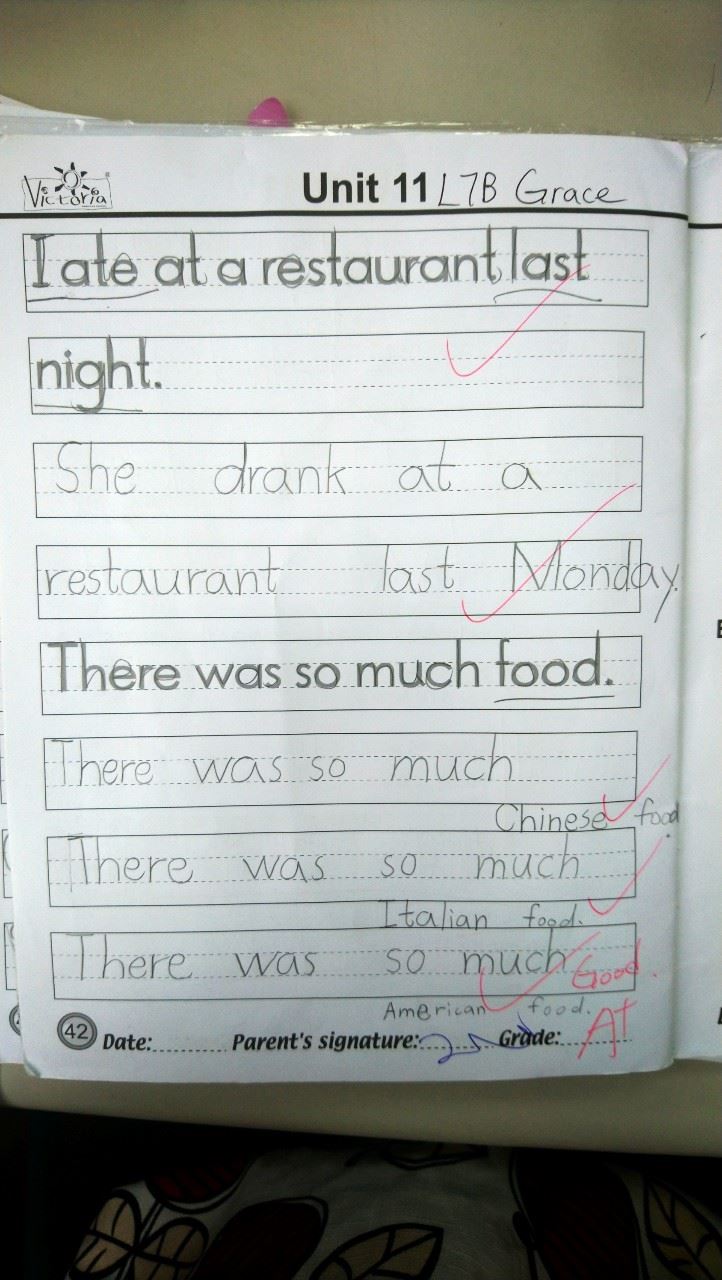 Victoria
Unit 11 L7B Grace
I ate at a restaurant last
night.
She drank at a
restaurant last Monday.
There was so much food.
There was so much
Chinese food
There was so much
Italian food.
There was so much Good.
American food.
42 Date: Parent's signature: Grade: A+